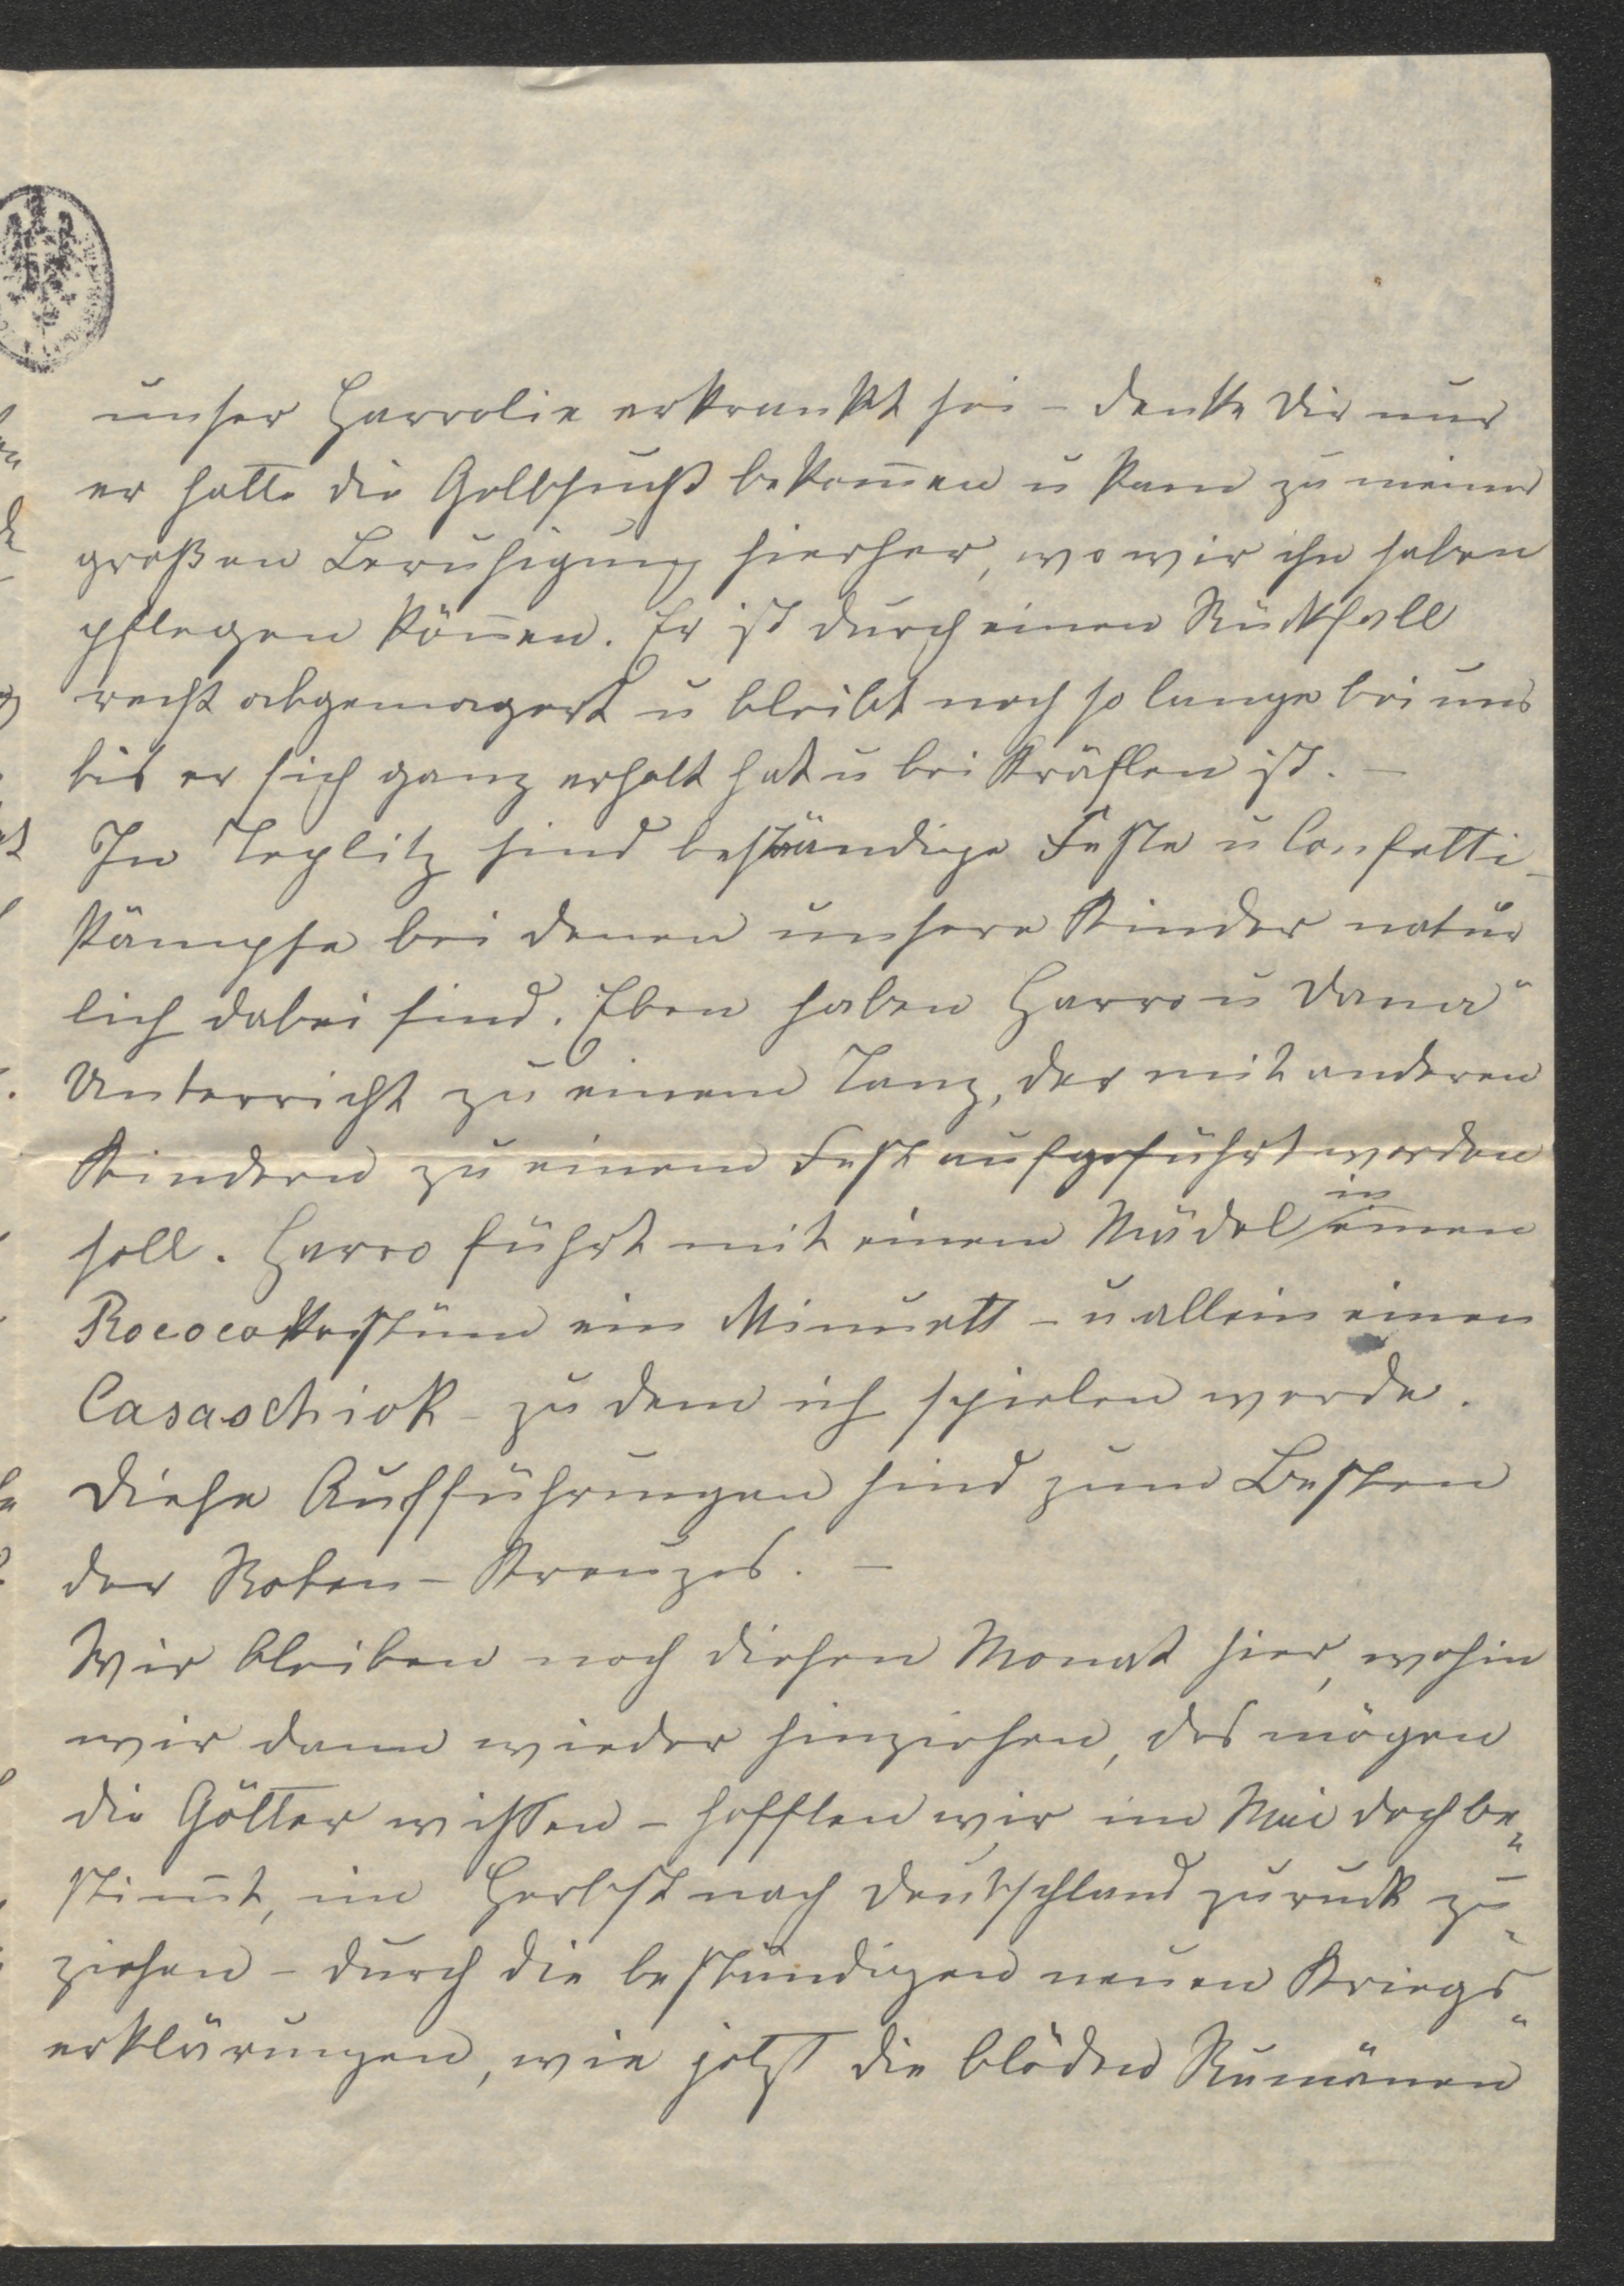 unser Harrolie erkrankt sei – denke Dir nur
er hatte die Gelbsucht bekom̅en u kam zu meiner
großen Beruhigung hierher, wo wir ihn haben
pflegen kön̅en. Er ist durch einen Rückfall
recht abgemagert u bleibt noch so lange bei uns
bis er sich ganz erholt hat u bei Kräften ist. –
In Teplitz sind beständige Feste u Confetti-
kämpfe bei denen unsere Kinder natür
lich dabei sind. Eben haben Harro u Dana
Unterricht zu einem Tanz, der mit anderen
Kindern zu einem Fest aufgeführt werden
soll. Harro führt mit einem Mädel in einen
Rococokostüm ein Minuett – u allein einen
Casaschiok – zu dem ich spielen werde.
Diese Aufführungen sind zum Besten
der Roten-Kreuzes. –
Wir bleiben noch diesen Monat hier, wohin
wir dann wieder hinziehen, das mögen
die Götter wissen – hofften wir im Mai doch be„
stim̅t, im Herbst nach Deutschland zurück zu
ziehen – durch die beständigen neuen Kriegs„
erklärungen, wie jetzt die blöden Rumänen